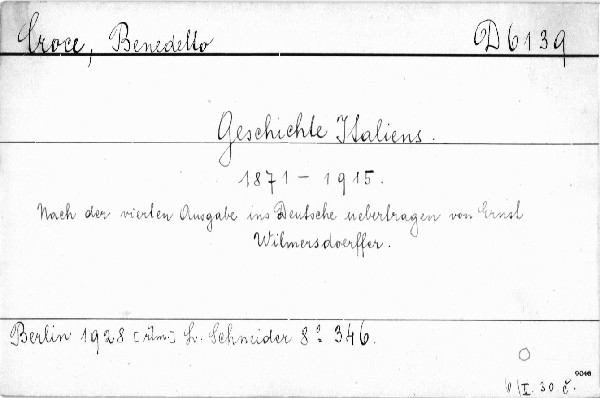 Croce, Benedetto D 6139
Geschichte Italiens.
1871 – 1915.
Nach der vierten Ausgabe ins Deutsche uebertragen von Ernst
Wilmersdoerffer.
Berlin 1928 L. Schneider 8° 346.
9046
I. 30 č.